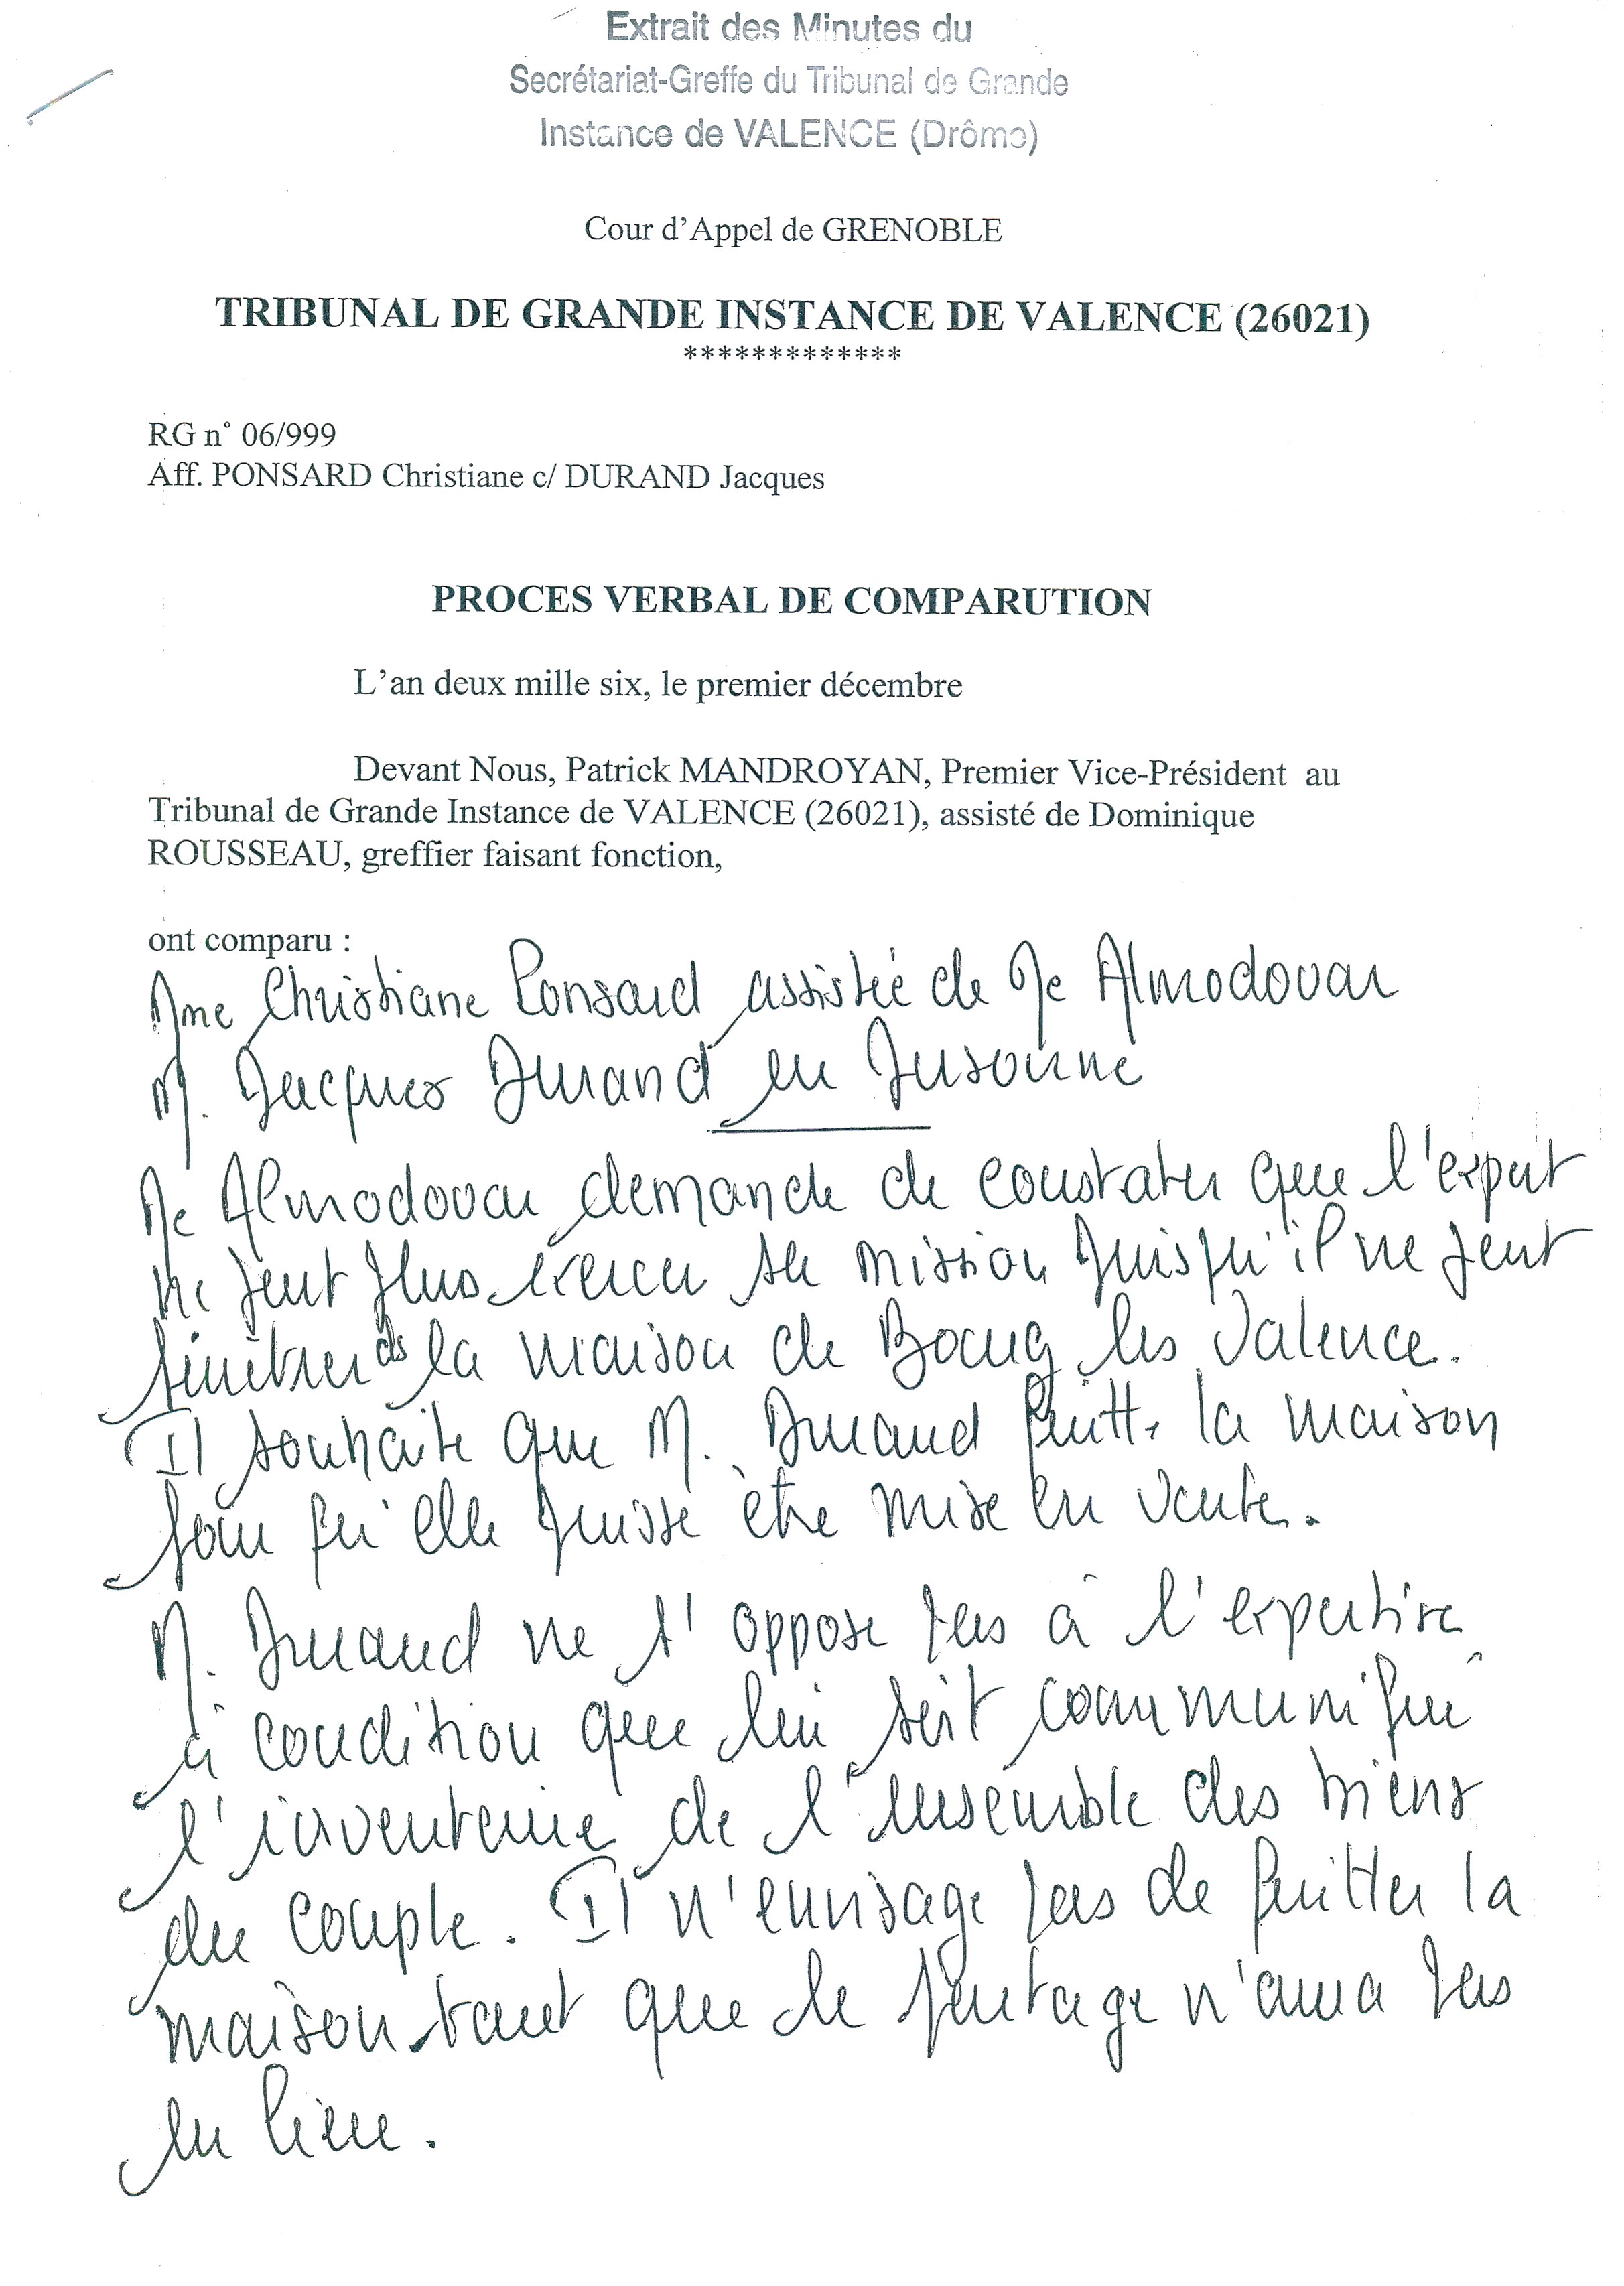 Extrait des Minutes du
Secrétariat-Greffe du Tribunal de Grande
Instance de VALENCE (Drôme)
Cour d'Appel de GRENOBLE
TRIBUNAL DE GRANDE INSTANCE DE VALENCE (26021)
*************
RG n° 06/999
Aff. PONSARD Christiane c/ DURAND Jacques
PROCES VERBAL DE COMPARUTION
L'an deux mille six, le premier décembre
Devant Nous, Patrick MANDROYAN, Premier Vice-Président au
Tribunal de Grande Instance de VALENCE (26021), assisté de Dominique
ROUSSEAU, greffier faisant fonction,
ont comparu :
Mme Christiane Ponsard assistée de Me Almodovar
M. Jacques Durand en personne
Me Almodovar demande de constater que l'expert
ne peut plus exercer sa mission puisqu'il ne peut
pénétrer ds la maison de Bourg les Valence.
Il souhaite que M. Durand quitte la maison
pour qu'elle puisse être mise en vente.
M. Durand ne s'oppose pas à l'expertise
à condition que lui soit communiqué
l'inventaire de l'ensemble des biens
du couple. Il n'envisage pas de quitter la
maison tant que le partage n'aura pas
eu lieu.